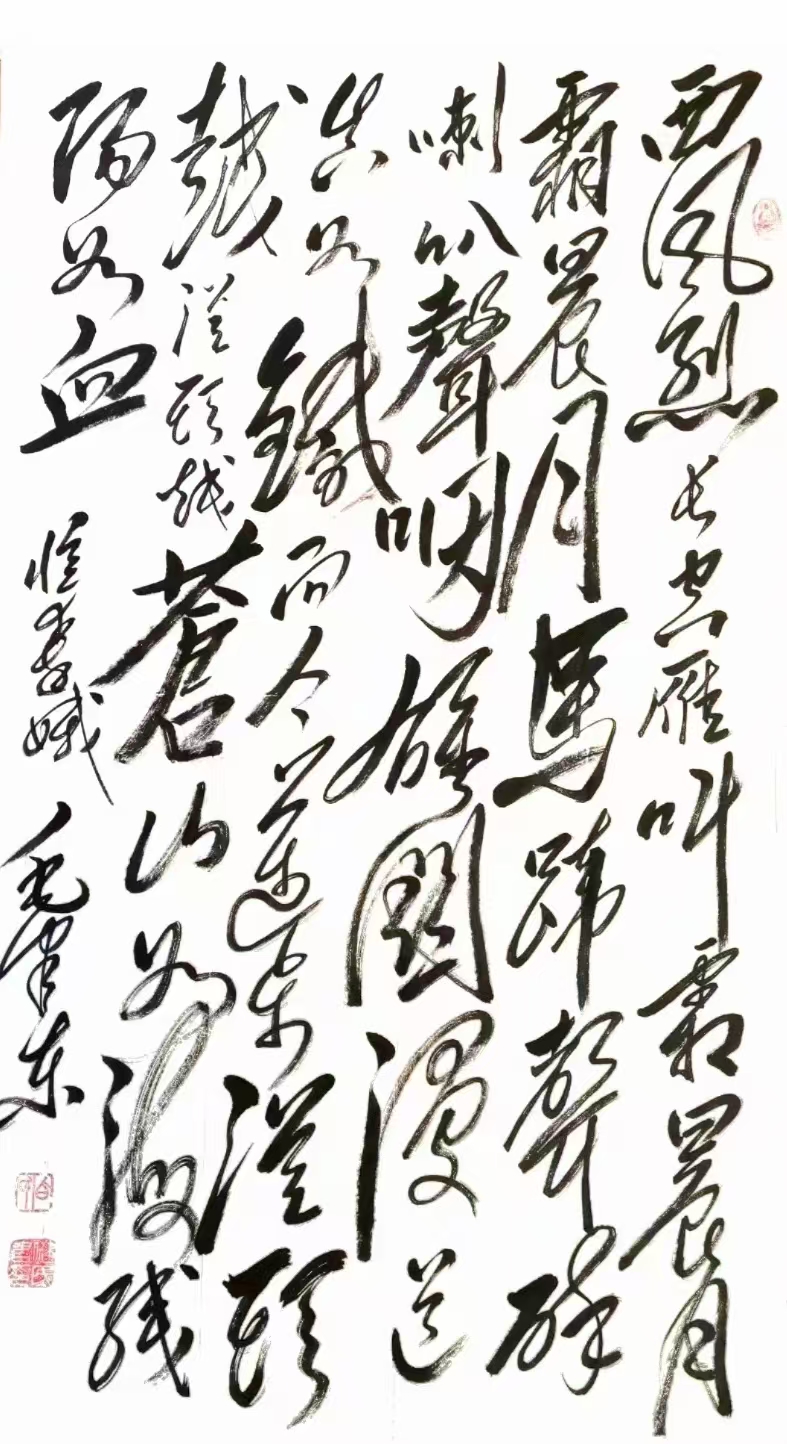 西風烈長空雁叫霜晨月
霜晨月馬蹄聲碎
喇叭聲咽雄關漫道
真如鐵而今邁步從頭
越從頭越蒼山如海殘
陽如血 憶秦娥 毛澤東